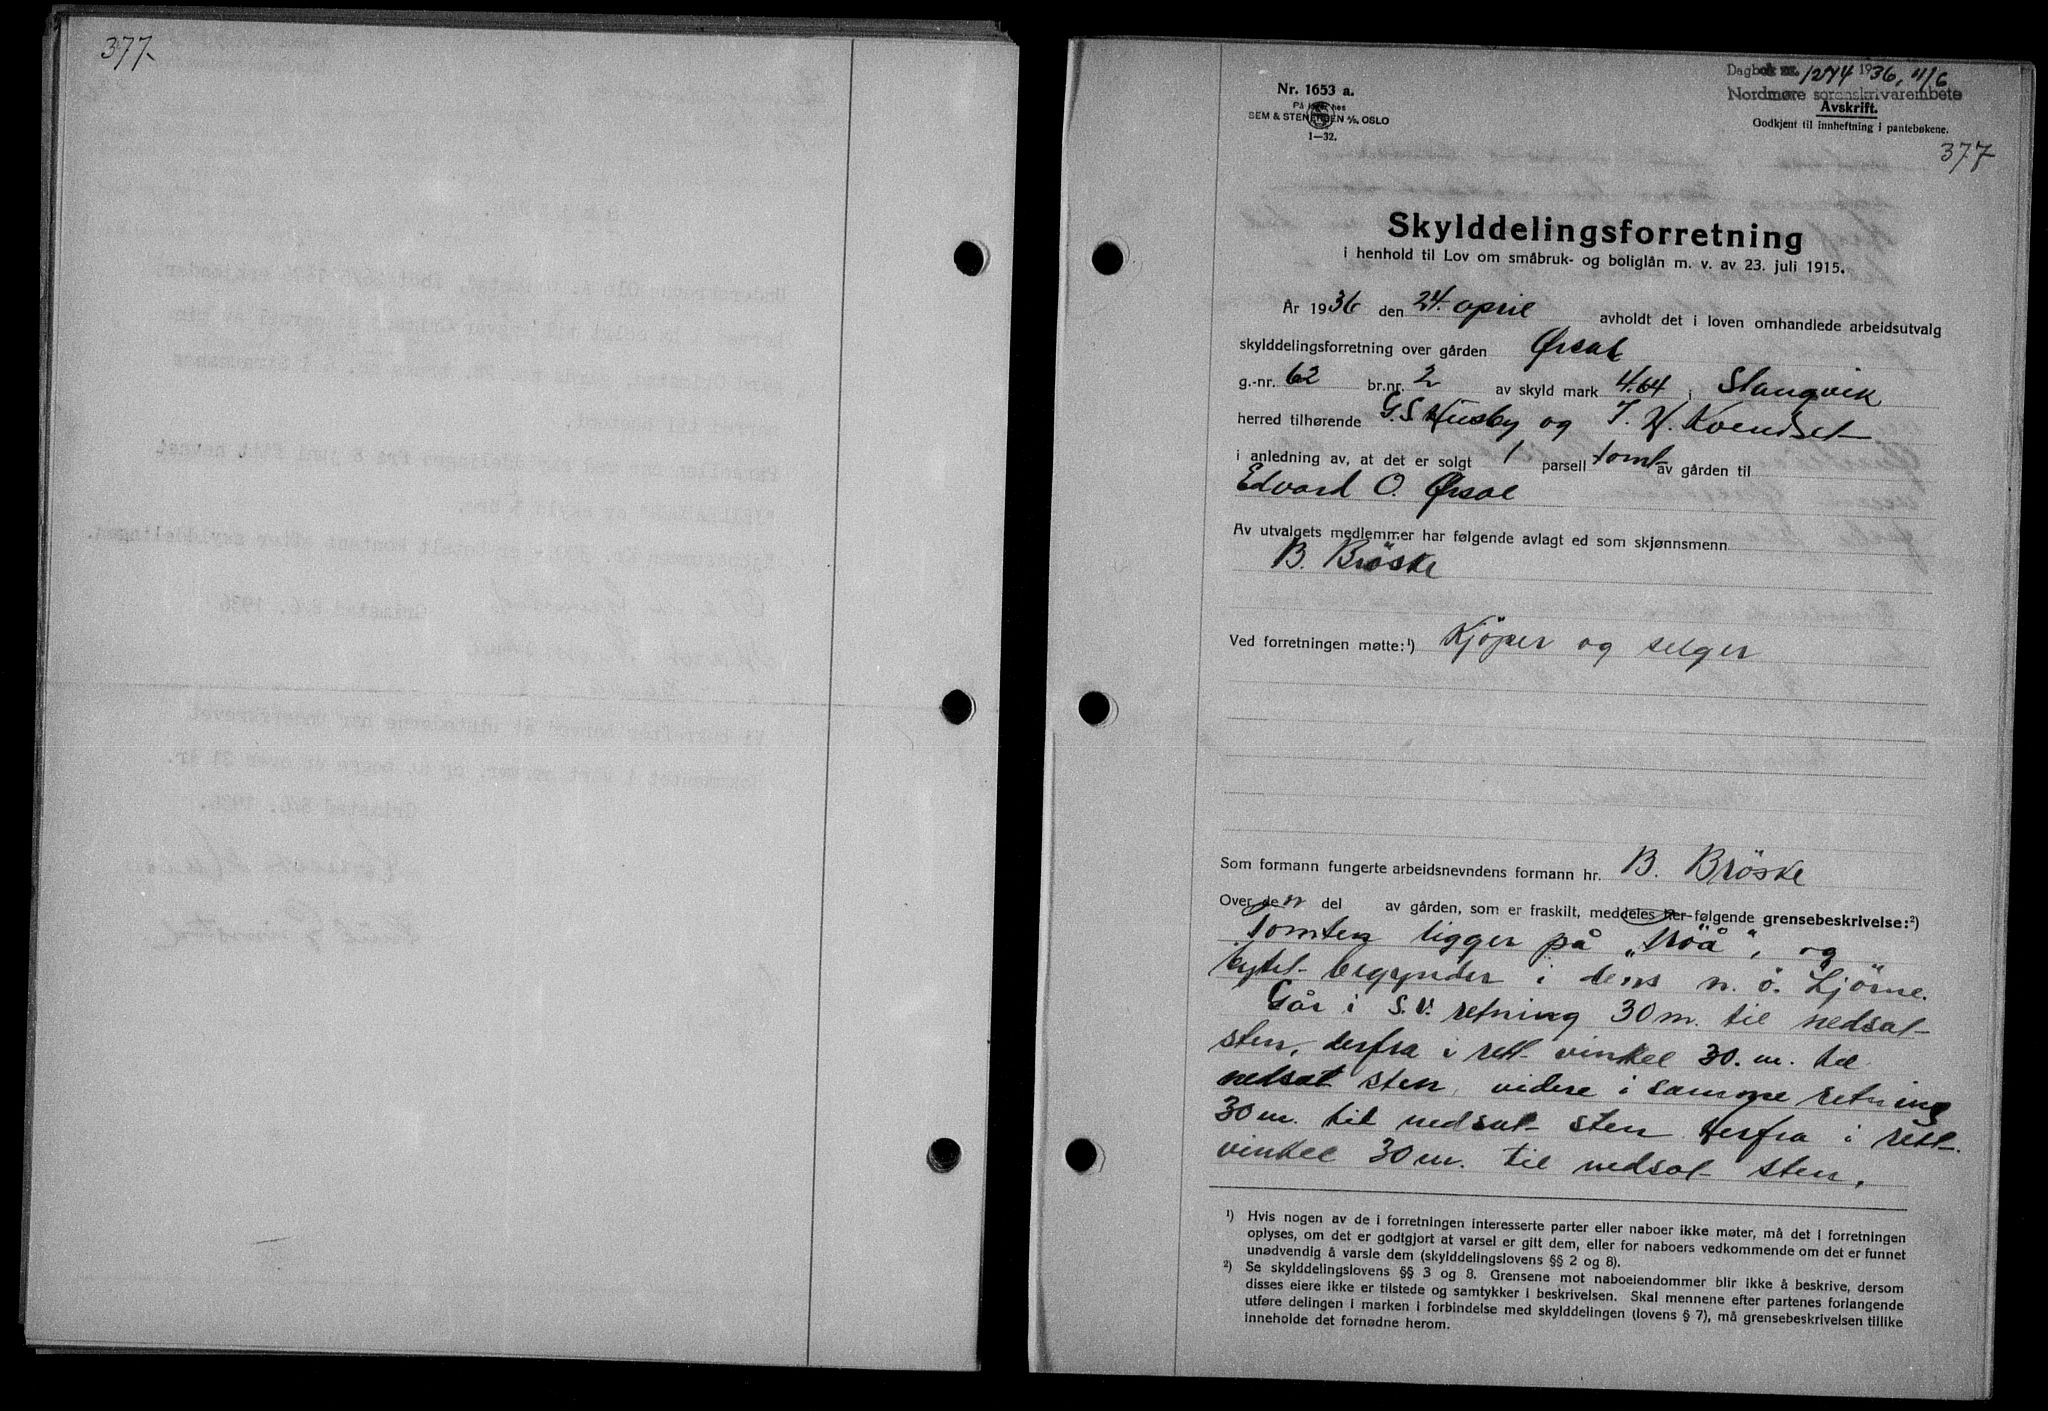 377-
Nr. 1653 a.
På lager hos
SEM & STENERSEN A/S, OSLO
1—32.
Dagbok nr. 1274 1936, 11/6
Nordmøre sorenskrivarembete
Avskrift.
Godkjent til innheftning i pantebøkene.
377
Skylddelingsforretning
i henhold til Lov om småbruk- og boliglån m. v. av 23. juli 1915.
År 1936 den 24. april avholdt det i loven omhandlede arbeidsutvalg
skylddelingsforretning over gården Ørsal
g.-nr. 62 br.nr. 2 av skyld mark 4.64 i Stangvik
herred tilhørende G. S Husby og T. H. Kvendset
i anledning av, at det er solgt 1 parsell tomt av gården til
Edvard O. Ørsal
Av utvalgets medlemmer har følgende avlagt ed som skjønnsmenn
B. Bröske
Ved forretningen møtte:¹) Kjöper og selger
Som formann fungerte arbeidsnevndens formann hr. B. Bröske
Over den del av gården, som er fraskilt, meddeles her følgende grensebeskrivelse:²)
Tomten ligger på „Tröå", og
bytet begynder i dens n. ö. hjörne.
Går i S.V. retning 30 m. til nedsat
sten, derfra i rett vinkel 30. m. til
nedsat sten, videre i samme retning
30 m. til nedsat sten derfra i rett
vinkel 30 m. til nedsat sten.
¹) Hvis nogen av de i forretningen interesserte parter eller naboer ikke møter, må det i forretningen
oplyses, om det er godtgjort at varsel er gitt dem, eller for naboers vedkommende om det er funnet
unødvendig å varsle dem (skylddelingslovens §§ 2 og 8).
²) Se skylddelingslovens §§ 3 og 8. Grensene mot naboeiendommer blir ikke å beskrive, dersom
disses eiere ikke er tilstede og samtykker i beskrivelsen. Skal mennene efter partenes forlangende
utføre delingen i marken i forbindelse med skylddelingen (lovens § 7), må grensebeskrivelsen tillike
inneholde det fornødne herom.